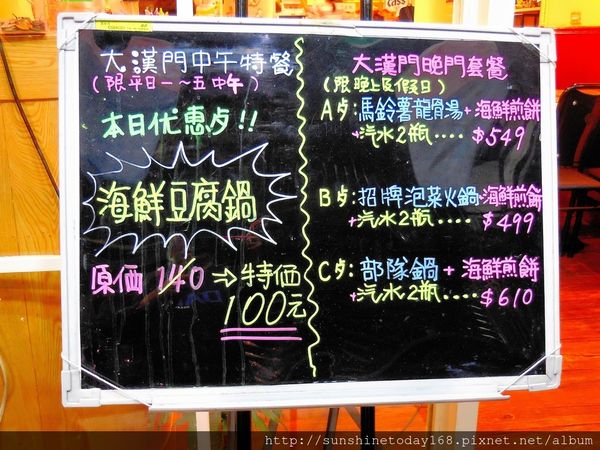 大漢門中午特餐
(限平日一～五中午)
本日优惠卢!!
海鮮豆腐鍋
原価 140 ⇒ 特価
100元
大漢門晚門套餐
(限晚上及假日)
A卢:馬鈴薯龍骨湯+海鮮煎餅
+汽水2瓶....$549
B卢:招牌泡菜火鍋+海鮮煎餅
+汽水2瓶....$499
C卢:部隊鍋+海鮮煎餅
+汽水2瓶....$610
http://sunshinetoday168.pixnet.net/album